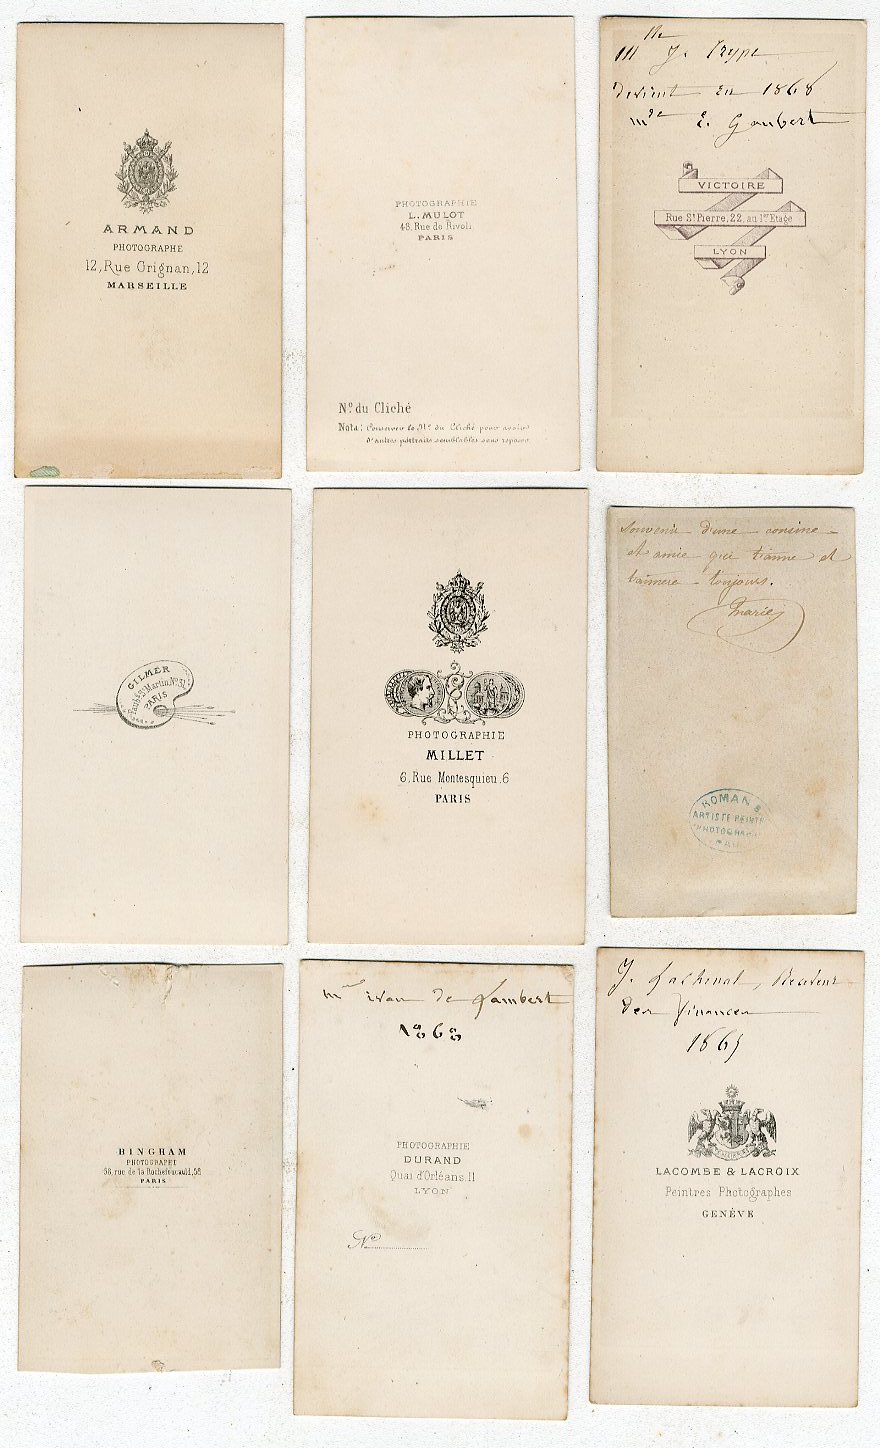 ARMAND
PHOTOGRAPHE
12, Rue Grignan, 12
MARSEILLE
PHOTOGRAPHIE
L. MULOT
48, Rue de Rivoli
PARIS
Nº du Cliché
Nota: Conserver le Nº du Cliché pour avoir
d'autres portraits semblables sans reposer.
Mlle J.
devient en 1868
mde E. Goubert
VICTOIRE
Rue St Pierre, 22, au 1er Etage
LYON
GILMER
Faubg St Martin, No 31,
PARIS
PHOTOGRAPHIE
MILLET
6, Rue Montesquieu, 6
PARIS
Souvenir d'une cousine
et amie qui t'aime et
t'aimera toujours.
Marie
ROMAN
ARTISTE PEINT
PHOTOGRA
PAU
BINGHAM
PHOTOGRAPHE
58, rue de la Rochefoucauld, 58
PARIS
mr ivan de Lambert
1868
PHOTOGRAPHIE
DURAND
Quai d'Orléans, 11
LYON
No
J. Lachenal, Receveur
des Finances
1865
LACOMBE & LACROIX
Peintres Photographes
GENÈVE